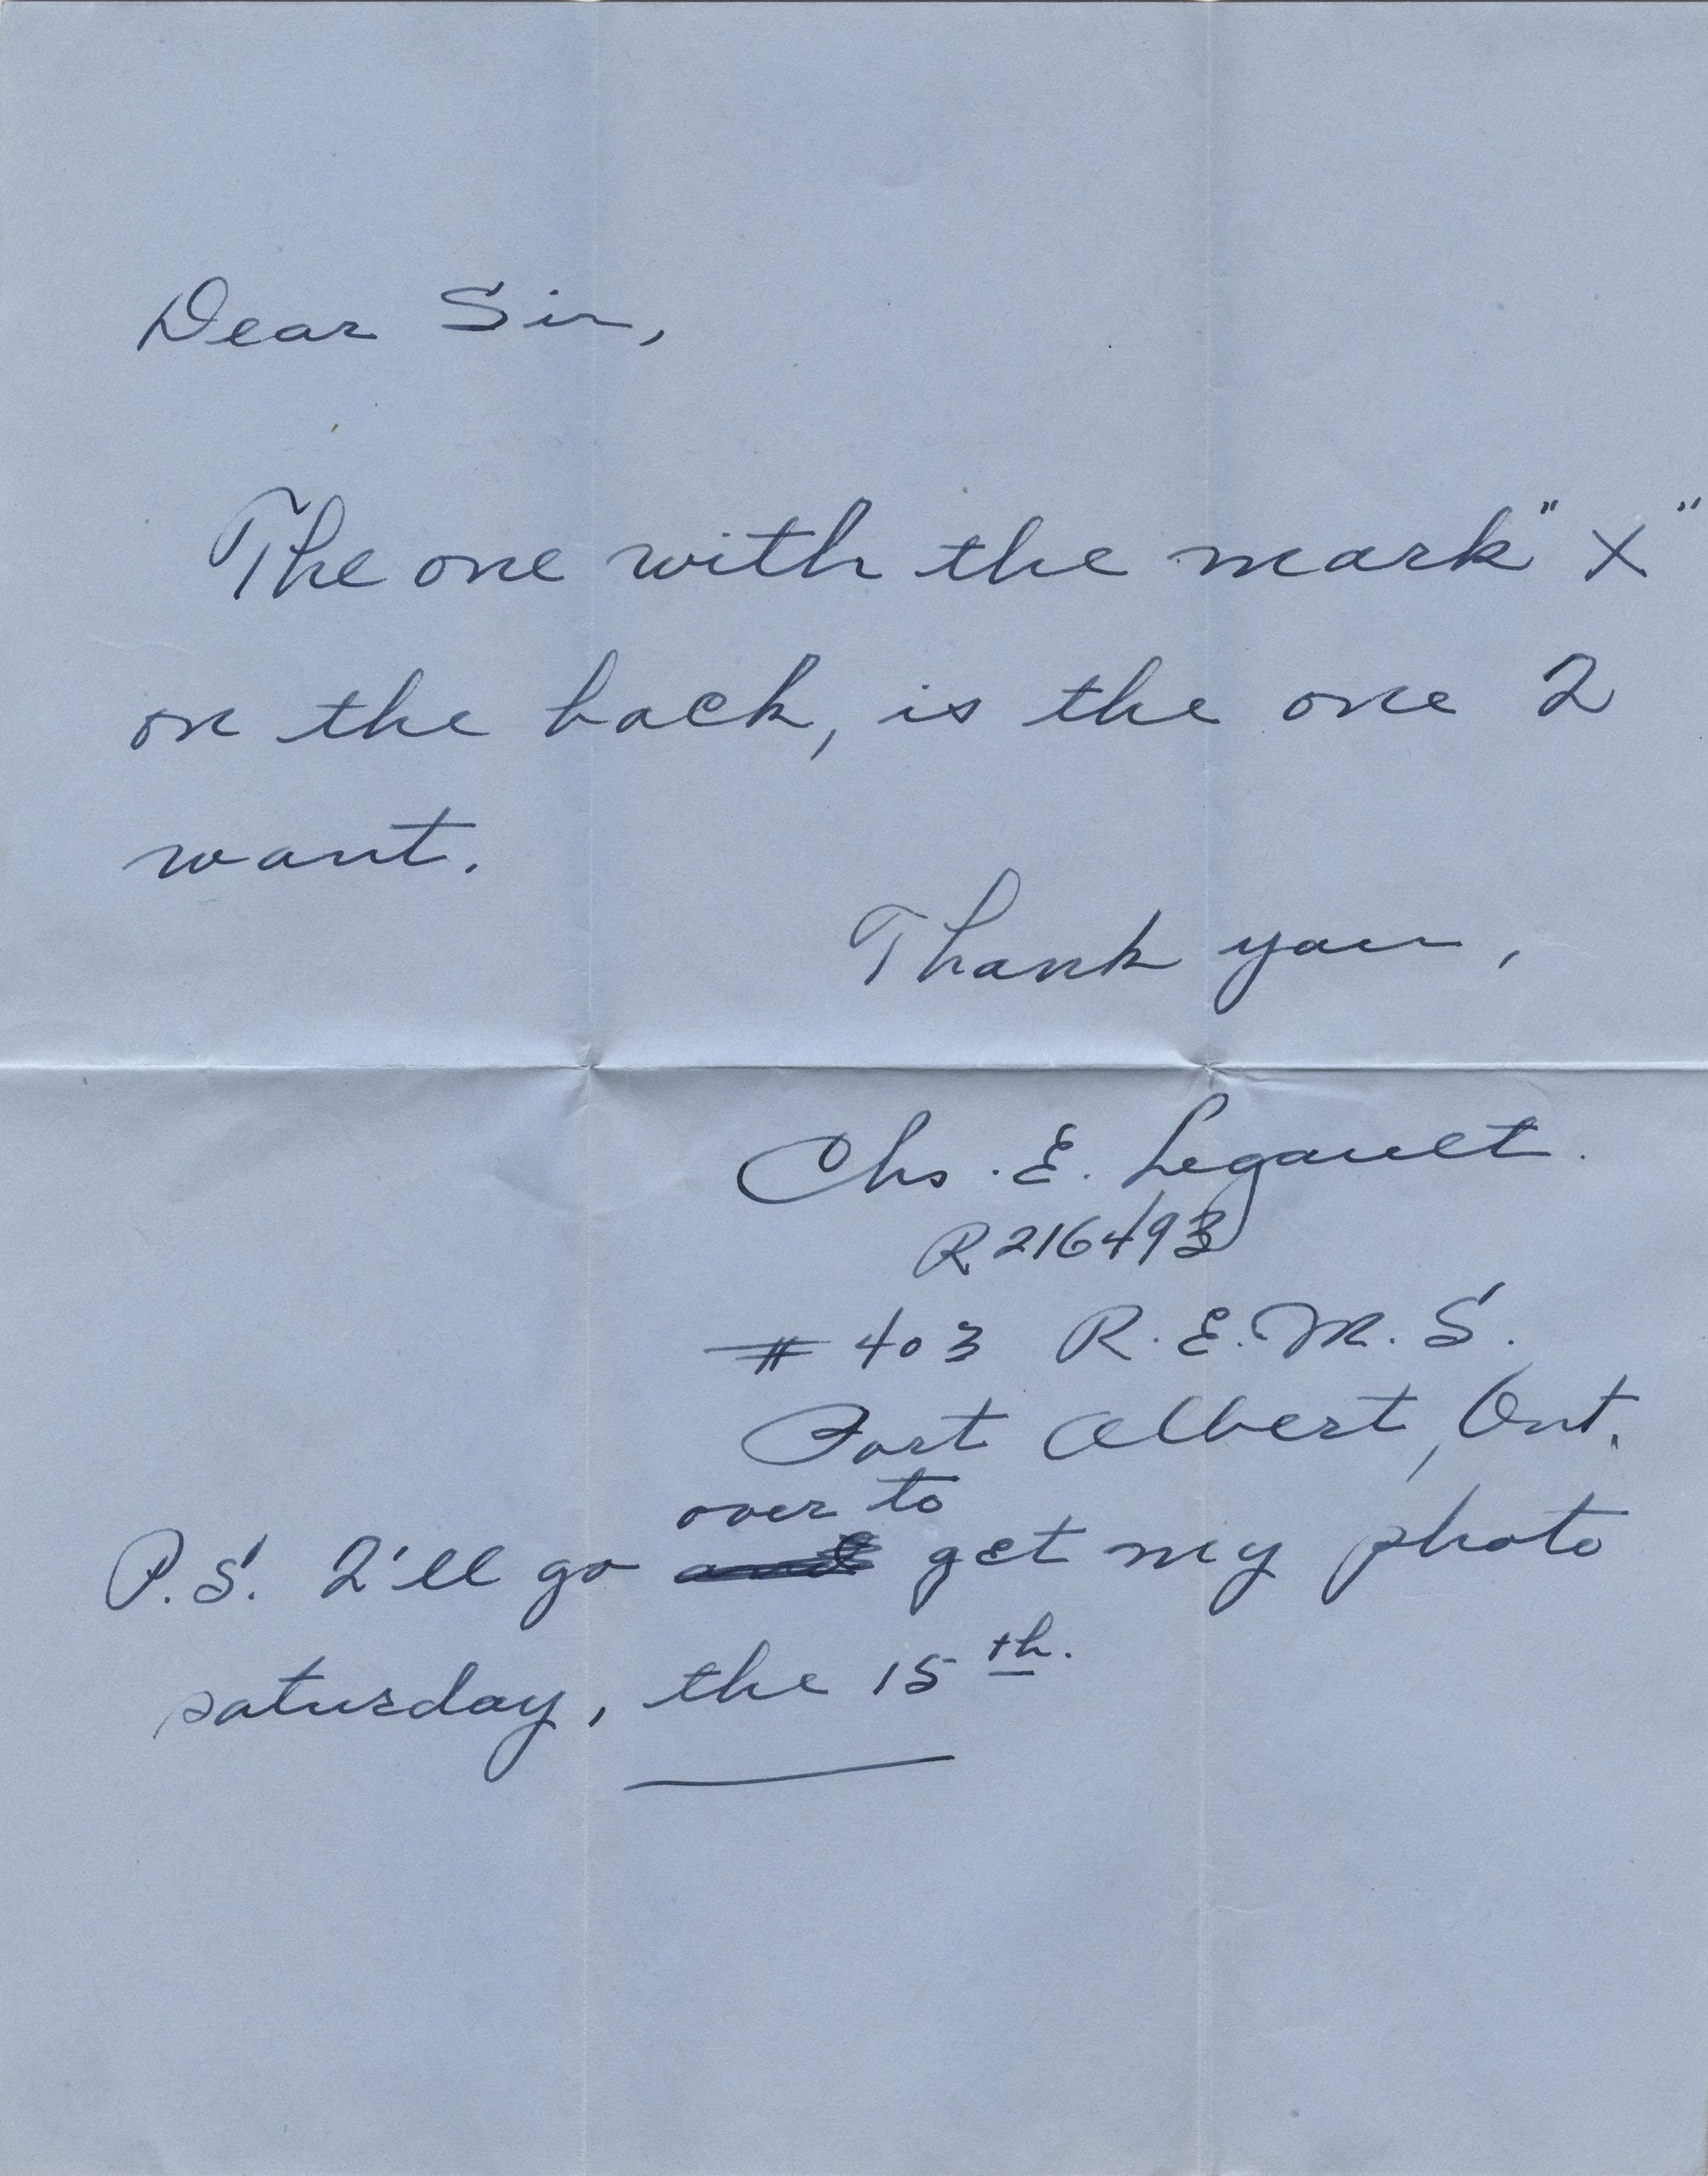 Dear Sir,
The one with the mark "X"
on the back, is the one I
want.
Thank you,
Chs. E. Legault.
R216493
# 403 R.E.M.S.
Port Albert, Ont.
over to
P.S. I'll go and get my photo
saturday, the 15th.